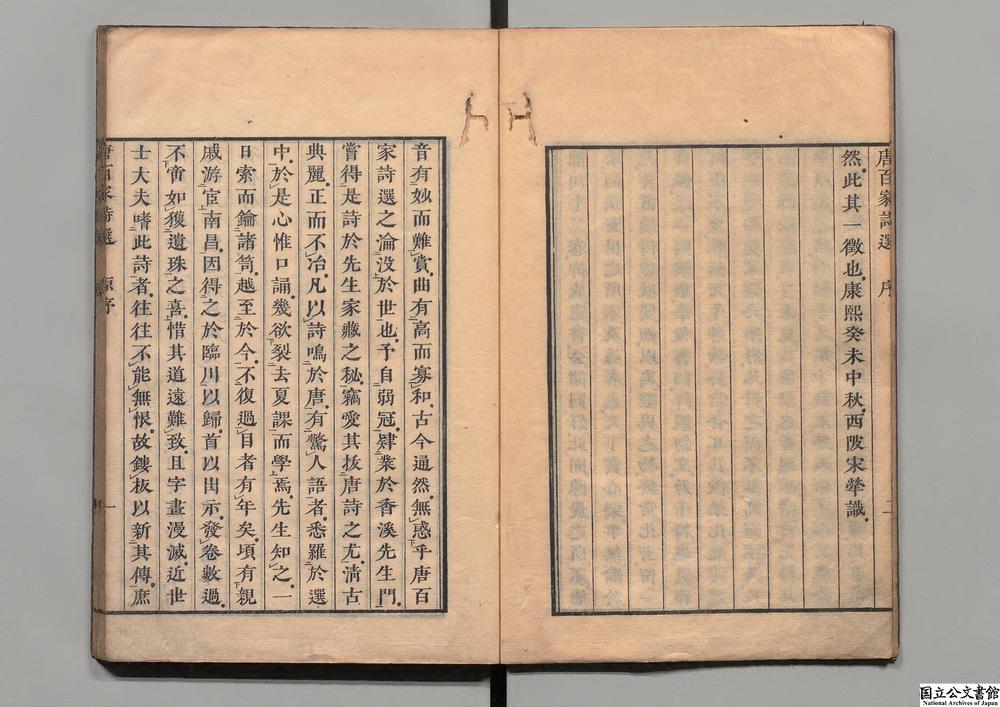 唐百家詩選 序 二
然此其一徵也康熙癸未中秋西陂宋犖識
音有妙而難賞曲有高而寡和古今通然無惑乎唐百
家詩選之淪没於世也予自弱冠肄業於香溪先生門
嘗得是詩於先生家藏之秘竊愛其拔唐詩之尤清古
典麗正而不冶凡以詩鳴於唐有驚人語者悉羅於選
中於是心惟口誦幾欲裂去夏課而學焉先生知之一
日索而鑰諸笥越至於今不復過目者有年矣頃有親
戚游宦南昌因得之於臨川以歸首以出示發卷數過
不啻如獲遺珠之喜惜其道遠難致且字畫漫滅近世
士大夫嗜此詩者往往不能無恨故鏤板以新其傳庶
唐百家詩選 原序 一
国立公文書館
National Archives of Japan